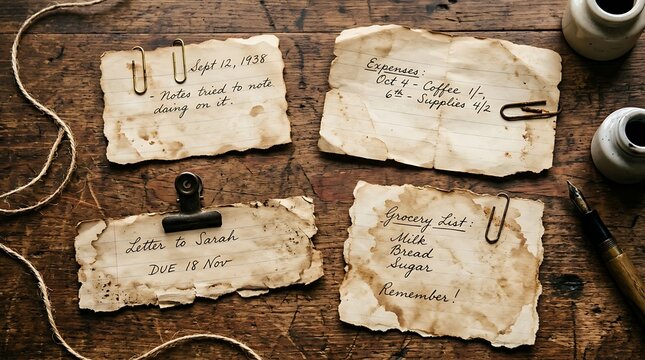 Sept 12, 1938
- Notes tried to note
daing on it.
Expenses:
Oct 4 - Coffee 1/-,
6th - Supplies 4/2
Letter to Sarah
DUE 18 Nov
Grocery List:
Milk
Bread
Sugar
Remember!